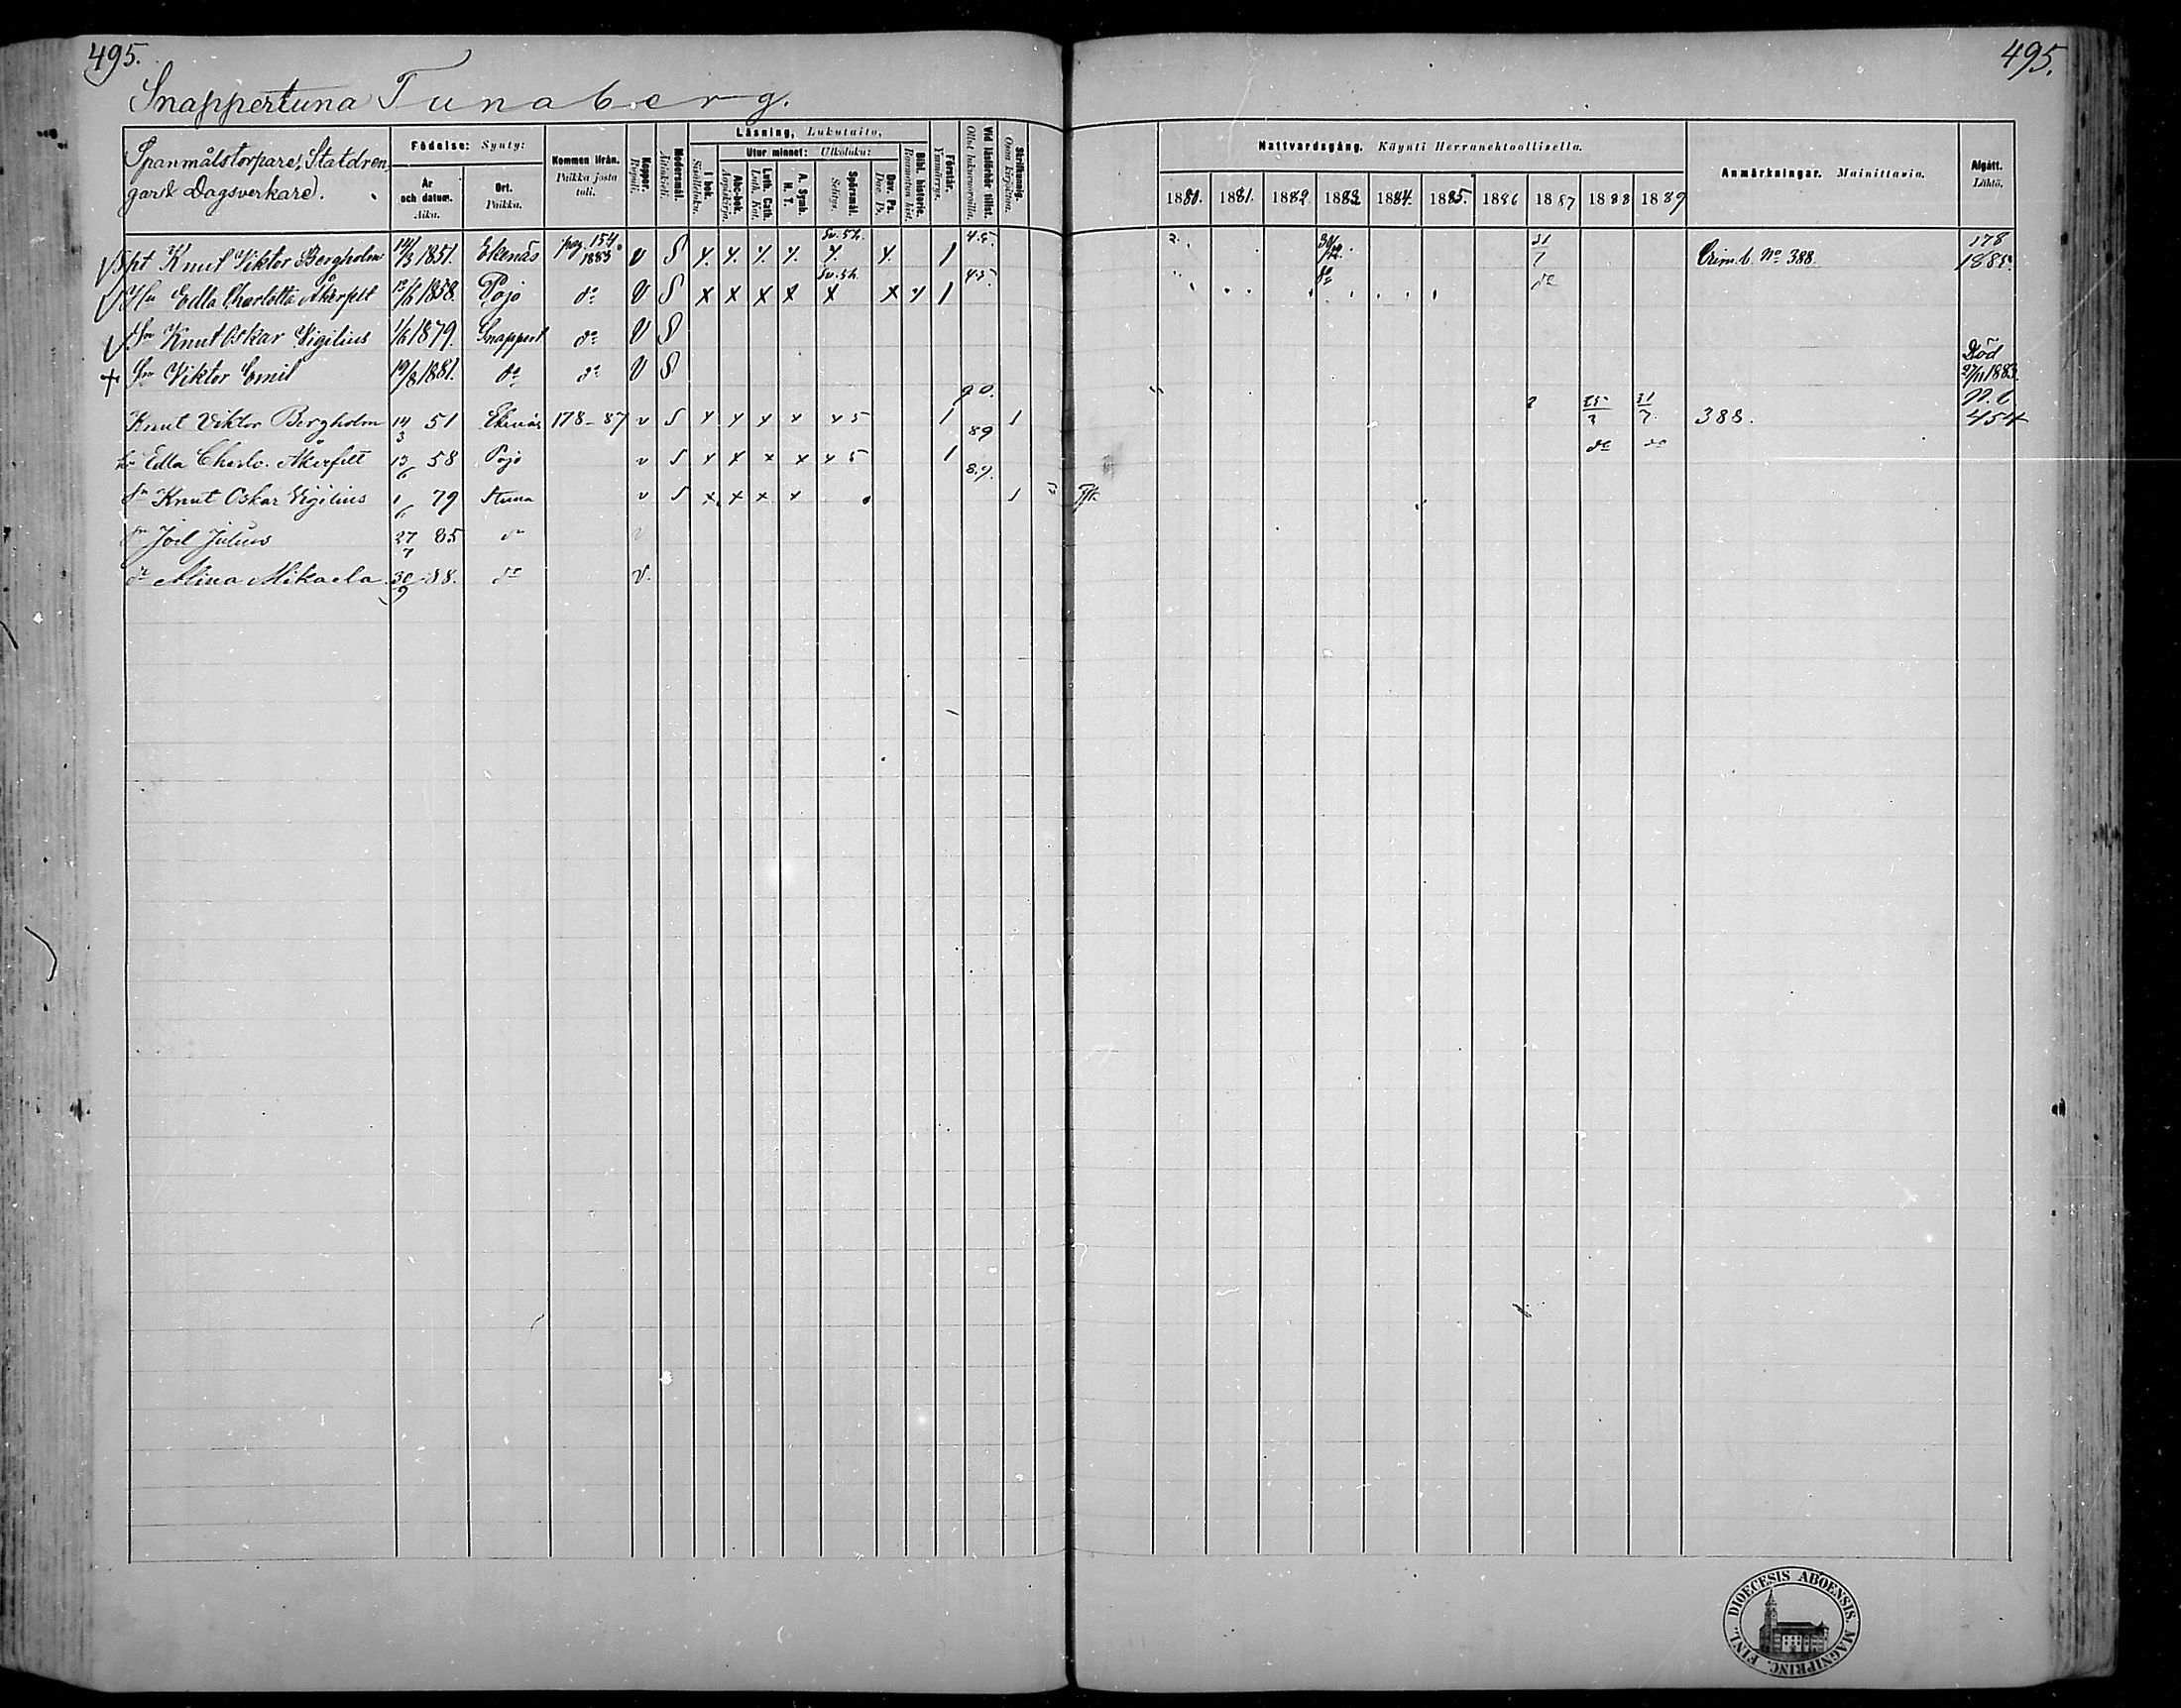 495.
495.
Snappertuna Tunaberg.
Spanmålstorpare, Statdren-
gar (& Dagsverkare).
Födelse: Synty:
År och datum. Aika.
Ort. Paikka.
Kommen ifrån. Paikka josta tuli.
Koppor. Rupuli.
Modersmål. Äitinkieli.
Läsning, Lukutaito,
I bok. Sisältäluku.
Utur minnet: Ulkoluku:
Abc-bok. Aapiskirja.
Luth. Cath. Luth. Kat.
A. Symb. H. T.
Spörsmål. Selitys.
Dav. Ps. Dav. Ps.
Bibl. historie. Raamatun hist.
Förstår. Ymmärrys.
Vid läsförhör tillst. Ollut lukuvuoroilla.
Skriftkunnig. Osaa kirjoittaa.
Nattvardsgång. Käynti Herranehtoollisella.
1880. 1881. 1882 1883 1884. 1885. 1886 1887 1888 1889
Anmärkningar. Mainittavia.
Afgått. Lähtö.
Spt Knut Viktor Bergholm 14/3 1851. Ekenäs pag. 154. 1883 v S Sv. 5 h. 1 4.5. 2. 30/12. 31/7 Crim. b. No 388. 178 1885.
Hu Edla Charlotta Åkerfelt 12/6 1858. Pojo do V S x x x x Sv. 3 h. x x 1 4.5. do do
Sn Knut Oskar Vigilius 1/6 1879. Snappert do V S
+ Sn Viktor Emil 19/8 1881. do do V S Död 27/11 1883.
Knut Viktor Bergholm 14/3 51 Ekenäs 178-87 v S x x x x x 5 1 90. 1 25/3 31/7. 388. N. b. 454
hu Edla Charlo. Åkerfelt 12/6 58 Pojo v S x x x x x 5 1 89 do do
Sn Knut Oskar Vigilius 1/6 79 Stuna v S x x x x 89. 1
Sn Joel Julius 27/7 85 do v
dr Alina Mikaela 30/9 88. do v.
DIOECESIS ABOENSIS. MAGNIPRINC. FINL.